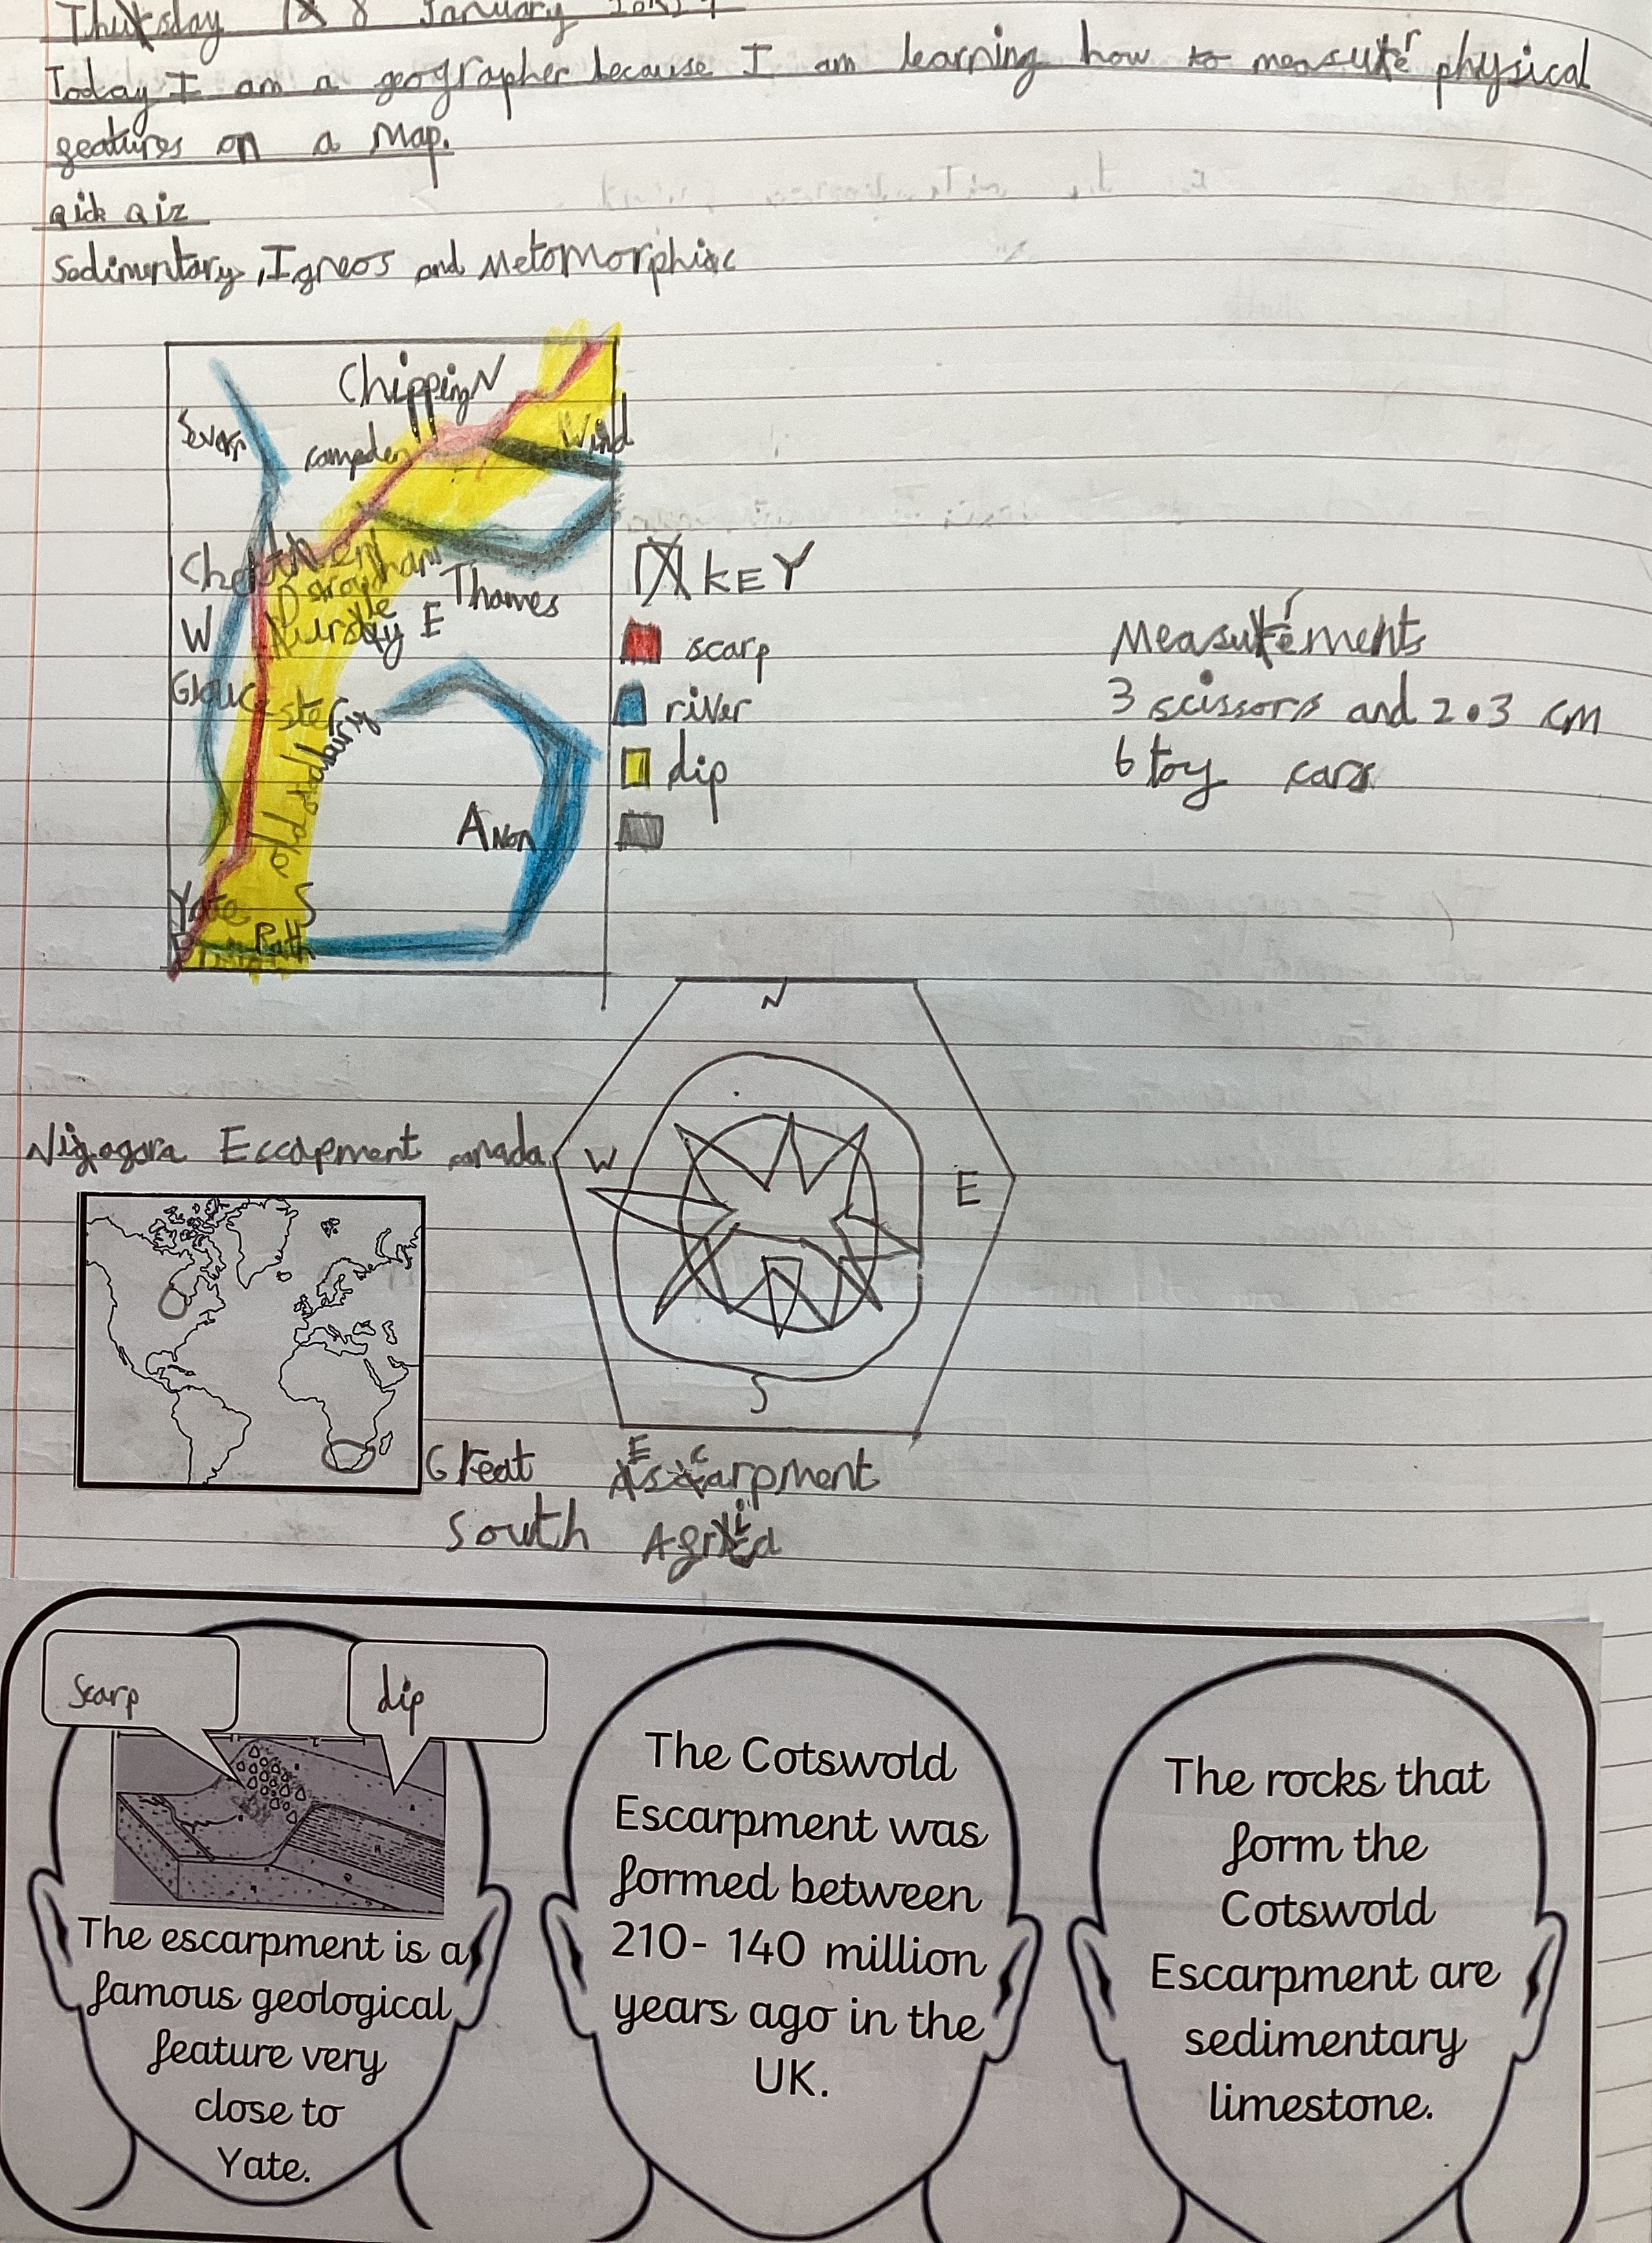 Thursday 18 January
Today I am a geographer because I am learning how to measure physical
features on a map.
qick qiz
Sedimentary, Igneos and Metomorphic
Chipping
campden
Severn
Wind
Thames
W
Dursley
E
Glouc ester
old sodbury
Avon
Yate
S
Bath
KEY
scarp
river
dip
Measurement
3 scissors and 2.3 cm
6 toy cars
N
W
E
S
Niagara Escapment canada
Great Escarpment
South Africa
Scarp
dip
The escarpment is a
famous geological
feature very
close to
Yate.
The Cotswold
Escarpment was
formed between
210- 140 million
years ago in the
UK.
The rocks that
form the
Cotswold
Escarpment are
sedimentary
limestone.